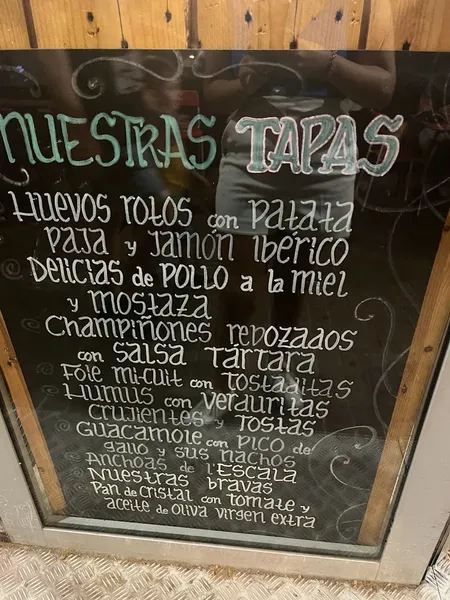 NUESTRAS TAPAS
Huevos rotos con patata
paja y jamón ibérico
Delicias de POLLO a la miel
y mostaza
Champiñones rebozados
con salsa tártara
Foie mi-cuit con tostaditas
Humus con verduritas
crujientes y tostas
Guacamole con pico de
gallo y sus nachos
Anchoas de l'Escala
Nuestras bravas
Pan de cristal con tomate y
aceite de oliva virgen extra